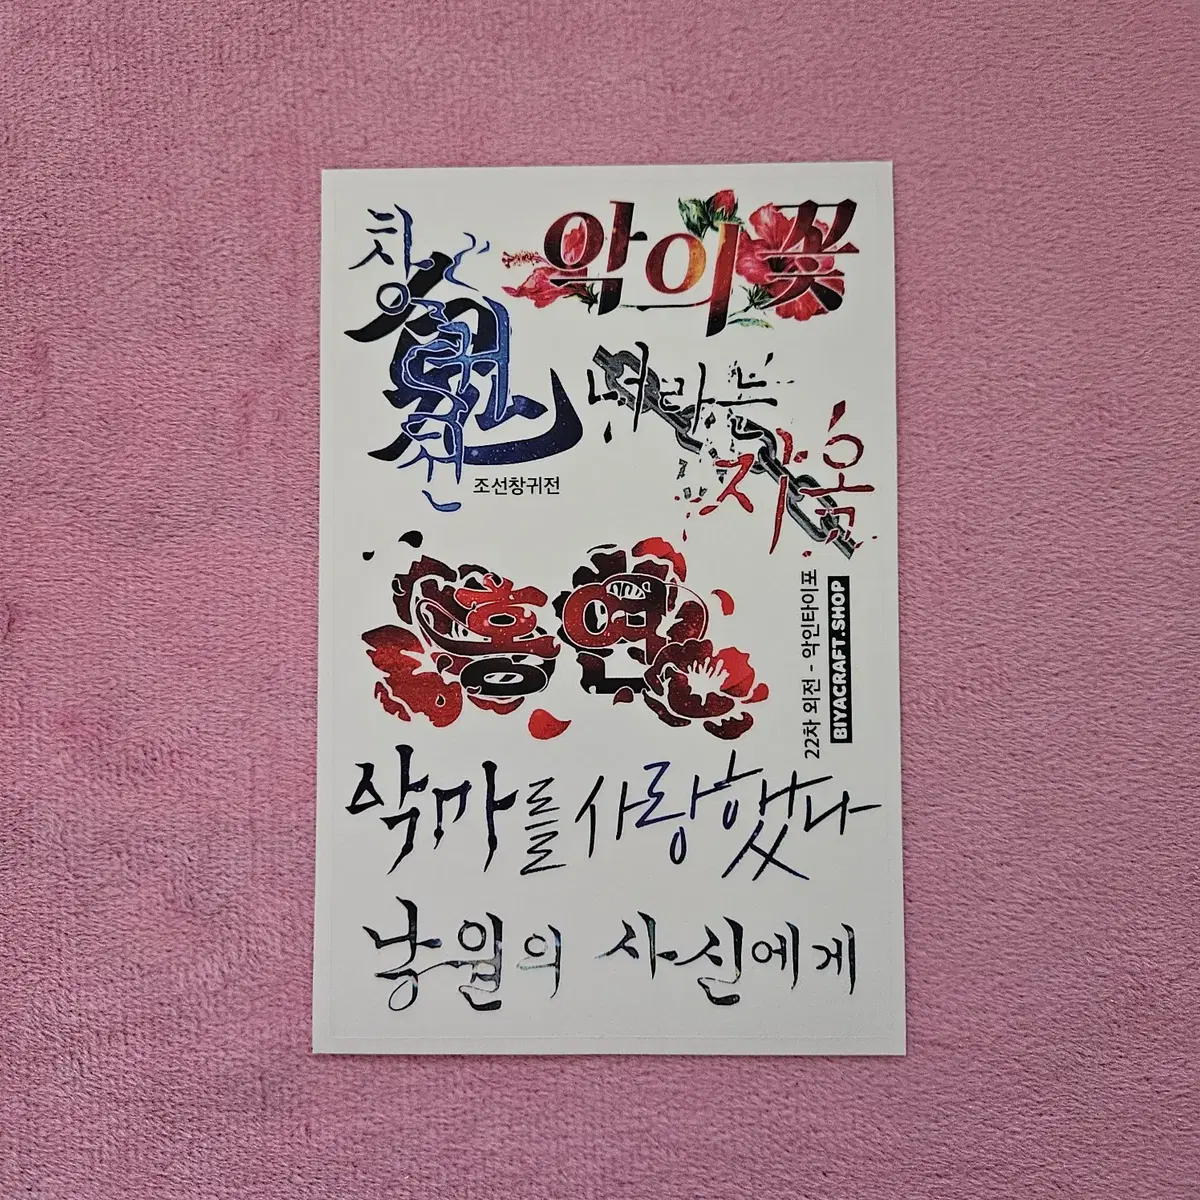 악의꽃
조선창귀전
너라는
자옥
홍연
22차 외전 - 악인타이포
BIYACRAFT.SHOP
악마를 사랑했다
낭월의 사신에게